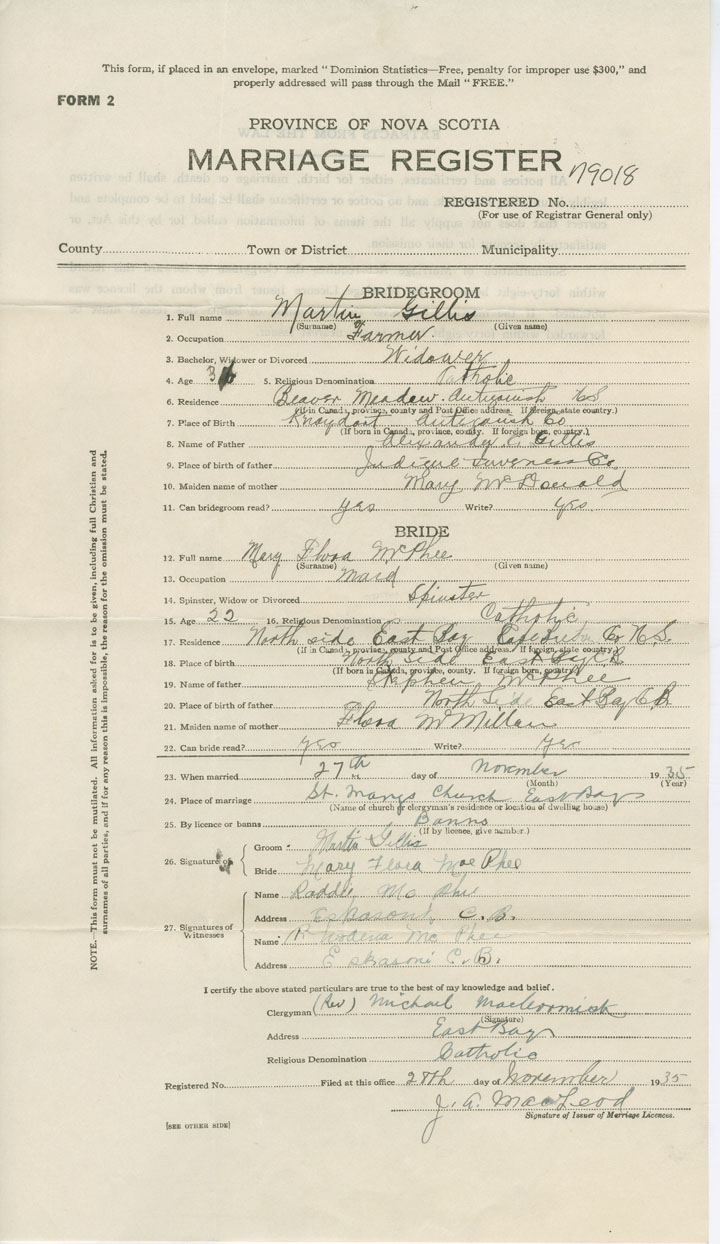 This form, if placed in an envelope, marked "Dominion Statistics—Free, penalty for improper use $300," and
properly addressed will pass through the Mail "FREE."
FORM 2
PROVINCE OF NOVA SCOTIA
MARRIAGE REGISTER
79018
REGISTERED No.
(For use of Registrar General only)
County Town or District Municipality
BRIDEGROOM
1. Full name Martin Gillis
(Surname) (Given name)
2. Occupation Farmer
3. Bachelor, Widower or Divorced Widower
4. Age 5. Religious Denomination Catholic
6. Residence Beaver Meadow. Antigonish NS
(If in Canada, province, county and Post Office address. If foreign, state country.)
7. Place of Birth Knoydart Antigonish Co
(If born in Canada, province, county. If foreign born, country.)
8. Name of Father Alexander C. Gillis
9. Place of birth of father Judique Inverness Co
10. Maiden name of mother Mary McDonald
11. Can bridegroom read? yes Write? yes
BRIDE
12. Full name Mary Flora McPhee
(Surname) (Given name)
13. Occupation Maid
14. Spinster, Widow or Divorced Spinster
15. Age 22 16. Religious Denomination Catholic
17. Residence North side East Bay Cape Breton Co N.S.
(If in Canada, province, county and Post Office address. If foreign, state country.)
18. Place of birth North Side East Bay C.B
(If born in Canada, province, county. If foreign born, country.)
19. Name of father Stephen McPhee
20. Place of birth of father North Side East Bay C.B
21. Maiden name of mother Flora McMillan
22. Can bride read? yes Write? yes
23. When married 27th day of November 1935
(Month) (Year)
24. Place of marriage St. Marys Church East Bay
(Name of church or clergyman's residence or location of dwelling house)
25. By licence or banns Banns
(If by licence, give number.)
26. Signature of
Groom Martin Gillis
Bride Mary Flora MacPhee
27. Signatures of Witnesses
Name Roddie McPhee
Address Eskasoni, C.B.
Name Mc Phee
Address Eskasoni C.B.
I certify the above stated particulars are true to the best of my knowledge and belief.
Clergyman (Rev) Michael MacCormick
(Signature)
Address East Bay
Religious Denomination Catholic
Registered No. Filed at this office 28th day of November 1935
J. A. MacLeod
Signature of Issuer of Marriage Licences.
[SEE OTHER SIDE]
NOTE.—This form must not be mutilated. All information asked for is to be given, including full Christian and
surnames of all parties, and if for any reason this is impossible, the reason for the omission must be stated.